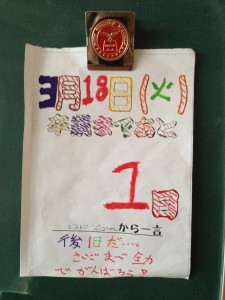 3月18日(火)
卒業まであと
1回
から一言
後1日だ…。
さいごまで全力
でがんばろう